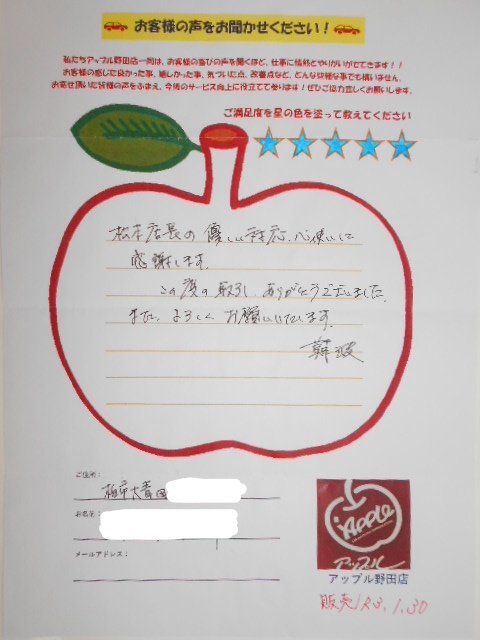 お客様の声をお聞かせください！
私たちアップル野田店一同は、お客様の喜びの声を聞くほど、仕事に情熱とやりがいがでてきます！！
お客様の感じた良かった事、嬉しかった事、気づいた点、改善点など、どんな些細な事でも構いません。
お寄せ頂いた皆様の声をふまえ、今後のサービス向上に役立てて参ります！ぜひご協力宜しくお願いします。
ご満足度を星の色を塗って教えてください
松本店長の優しい対応、心使いに
感謝します。
この度の取引、ありがとうございました。
また、よろしくお願いいたします。
ご住所：
柏市大青田
お名前：
メールアドレス：
APPLE
アップル
アップル野田店
販売 R3.1.30